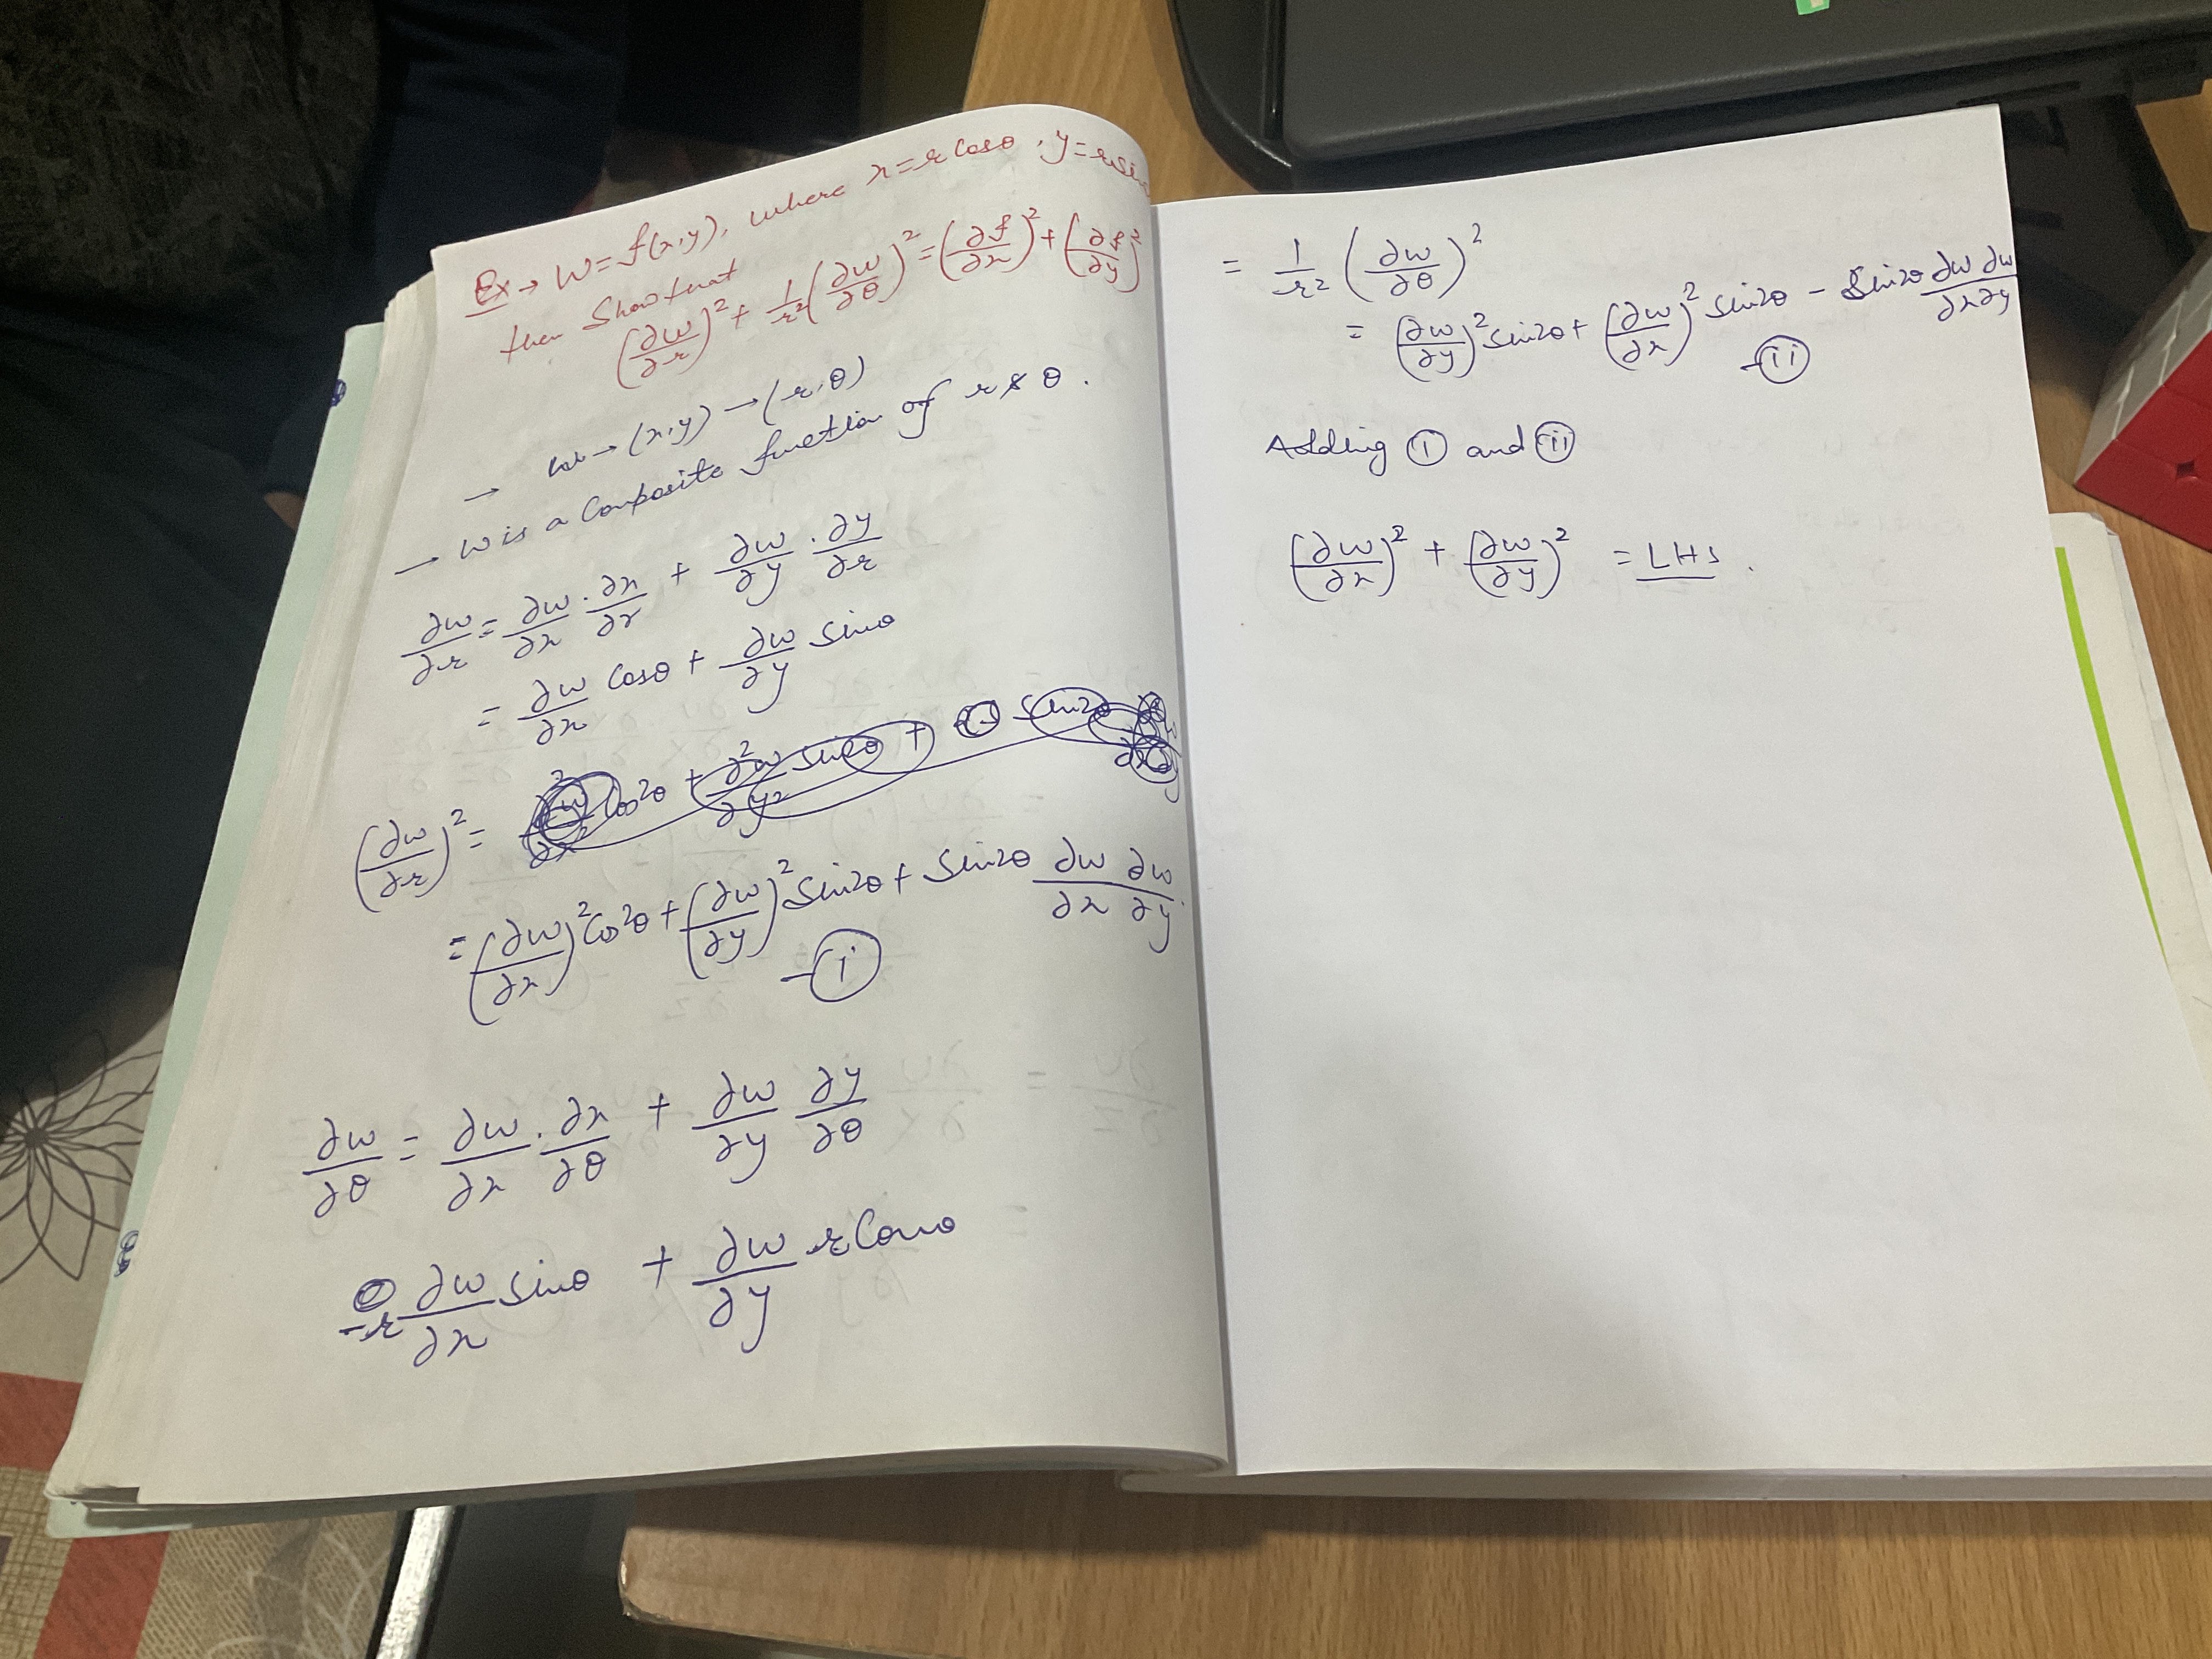 Ex → W = f(x,y), where x = r Cosθ, y = r sin
then Show that
(∂w/∂r)² + 1/r² (∂w/∂θ)² = (∂f/∂x)² + (∂f/∂y)²
→ w → (x,y) → (r,θ)
→ W is a Composite function of r & θ.
∂w/∂r = ∂w/∂x · ∂x/∂r + ∂w/∂y · ∂y/∂r
= ∂w/∂x Cosθ + ∂w/∂y sinθ
(∂w/∂r)² =
= (∂w/∂x)² Cos²θ + (∂w/∂y)² Sin2θ + Sin2θ ∂w/∂x ∂w/∂y
– (i)
∂w/∂θ = ∂w/∂x · ∂x/∂θ + ∂w/∂y ∂y/∂θ
-r ∂w/∂x sinθ + ∂w/∂y r Cosθ
= 1/r² (∂w/∂θ)²
= (∂w/∂y)² sin2θ + (∂w/∂x)² sin2θ – Sin2θ ∂w ∂w/∂x ∂y
– (ii)
Adding (i) and (ii)
(∂w/∂x)² + (∂w/∂y)² = LHS.